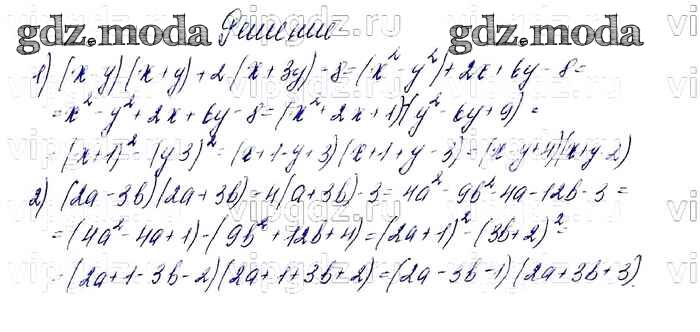 Решение
gdz.moda gdz.moda
1) (x-y)(x+y)+2(x+3y)-8=(x²-y²)+2x+6y-8=
=x²-y²+2x+6y-8=(x²+2x+1)(y²-6y+9)=
=(x+1)²-(y-3)²=(x+1-y+3)(x+1+y-3)=(x-y+4)(x+y-2)
2) (2a-3b)(2a+3b)-4(a+3b)-3=4a²-9b²-4a-12b-3=
=(4a²-4a+1)-(9b²+12b+4)=(2a+1)²-(3b+2)²=
=(2a+1-3b-2)(2a+1+3b+2)=(2a-3b-1)(2a+3b+3).
vipgdz.ru